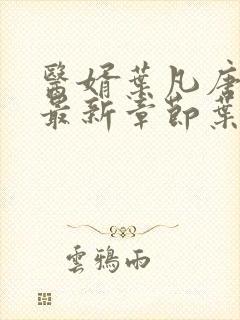 醫婿葉凡唐
最新章節葉
雲鴉雨